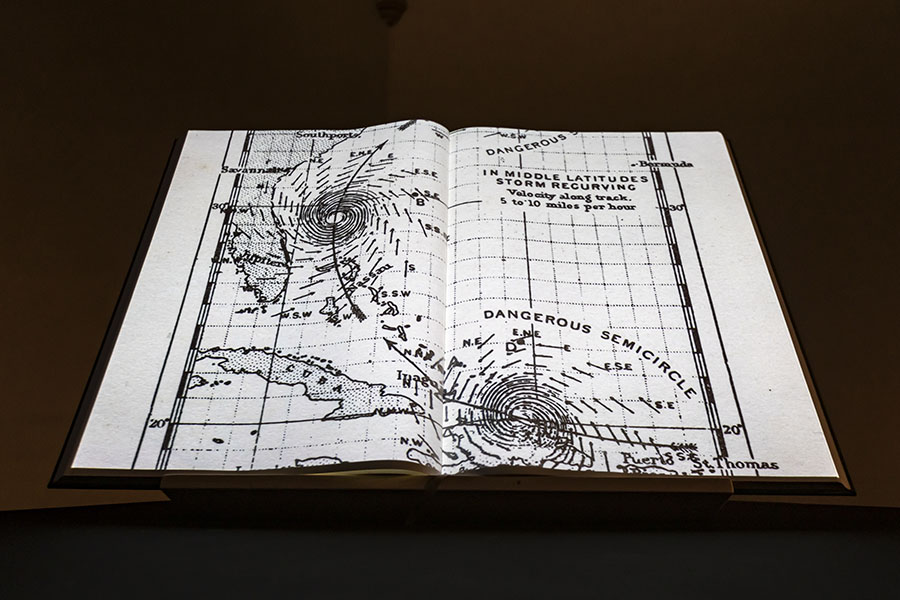 Southport
W.S.W
DANGEROUS
E.
E.S.E
Savannah
Bermuda
IN MIDDLE LATITUDES
STORM RECURVING
Velocity along track.
5 to 10 miles per hour
B
30°
30°
S
S.S.W
W.S.W
DANGEROUS SEMICIRCLE
N.E
E.N.E
D
E
E.S.E
CUBA
S.E
N.W
20°
20°
Puerto
St. Thomas